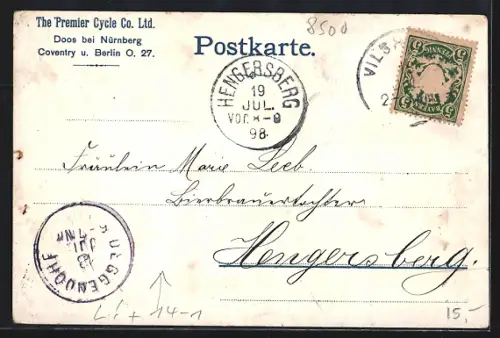 The Premier Cycle Co. Ltd.
Doos bei Nürnberg
Coventry u. Berlin O. 27.
8500
Postkarte.
HENGERSBERG
19
JUL.
VOR 8-9
98.
VILS
Fräulein Marie Leeb.
Bierbrauertochter
Hengersberg.
DEGGENDORF
JUL
14-1
15,-